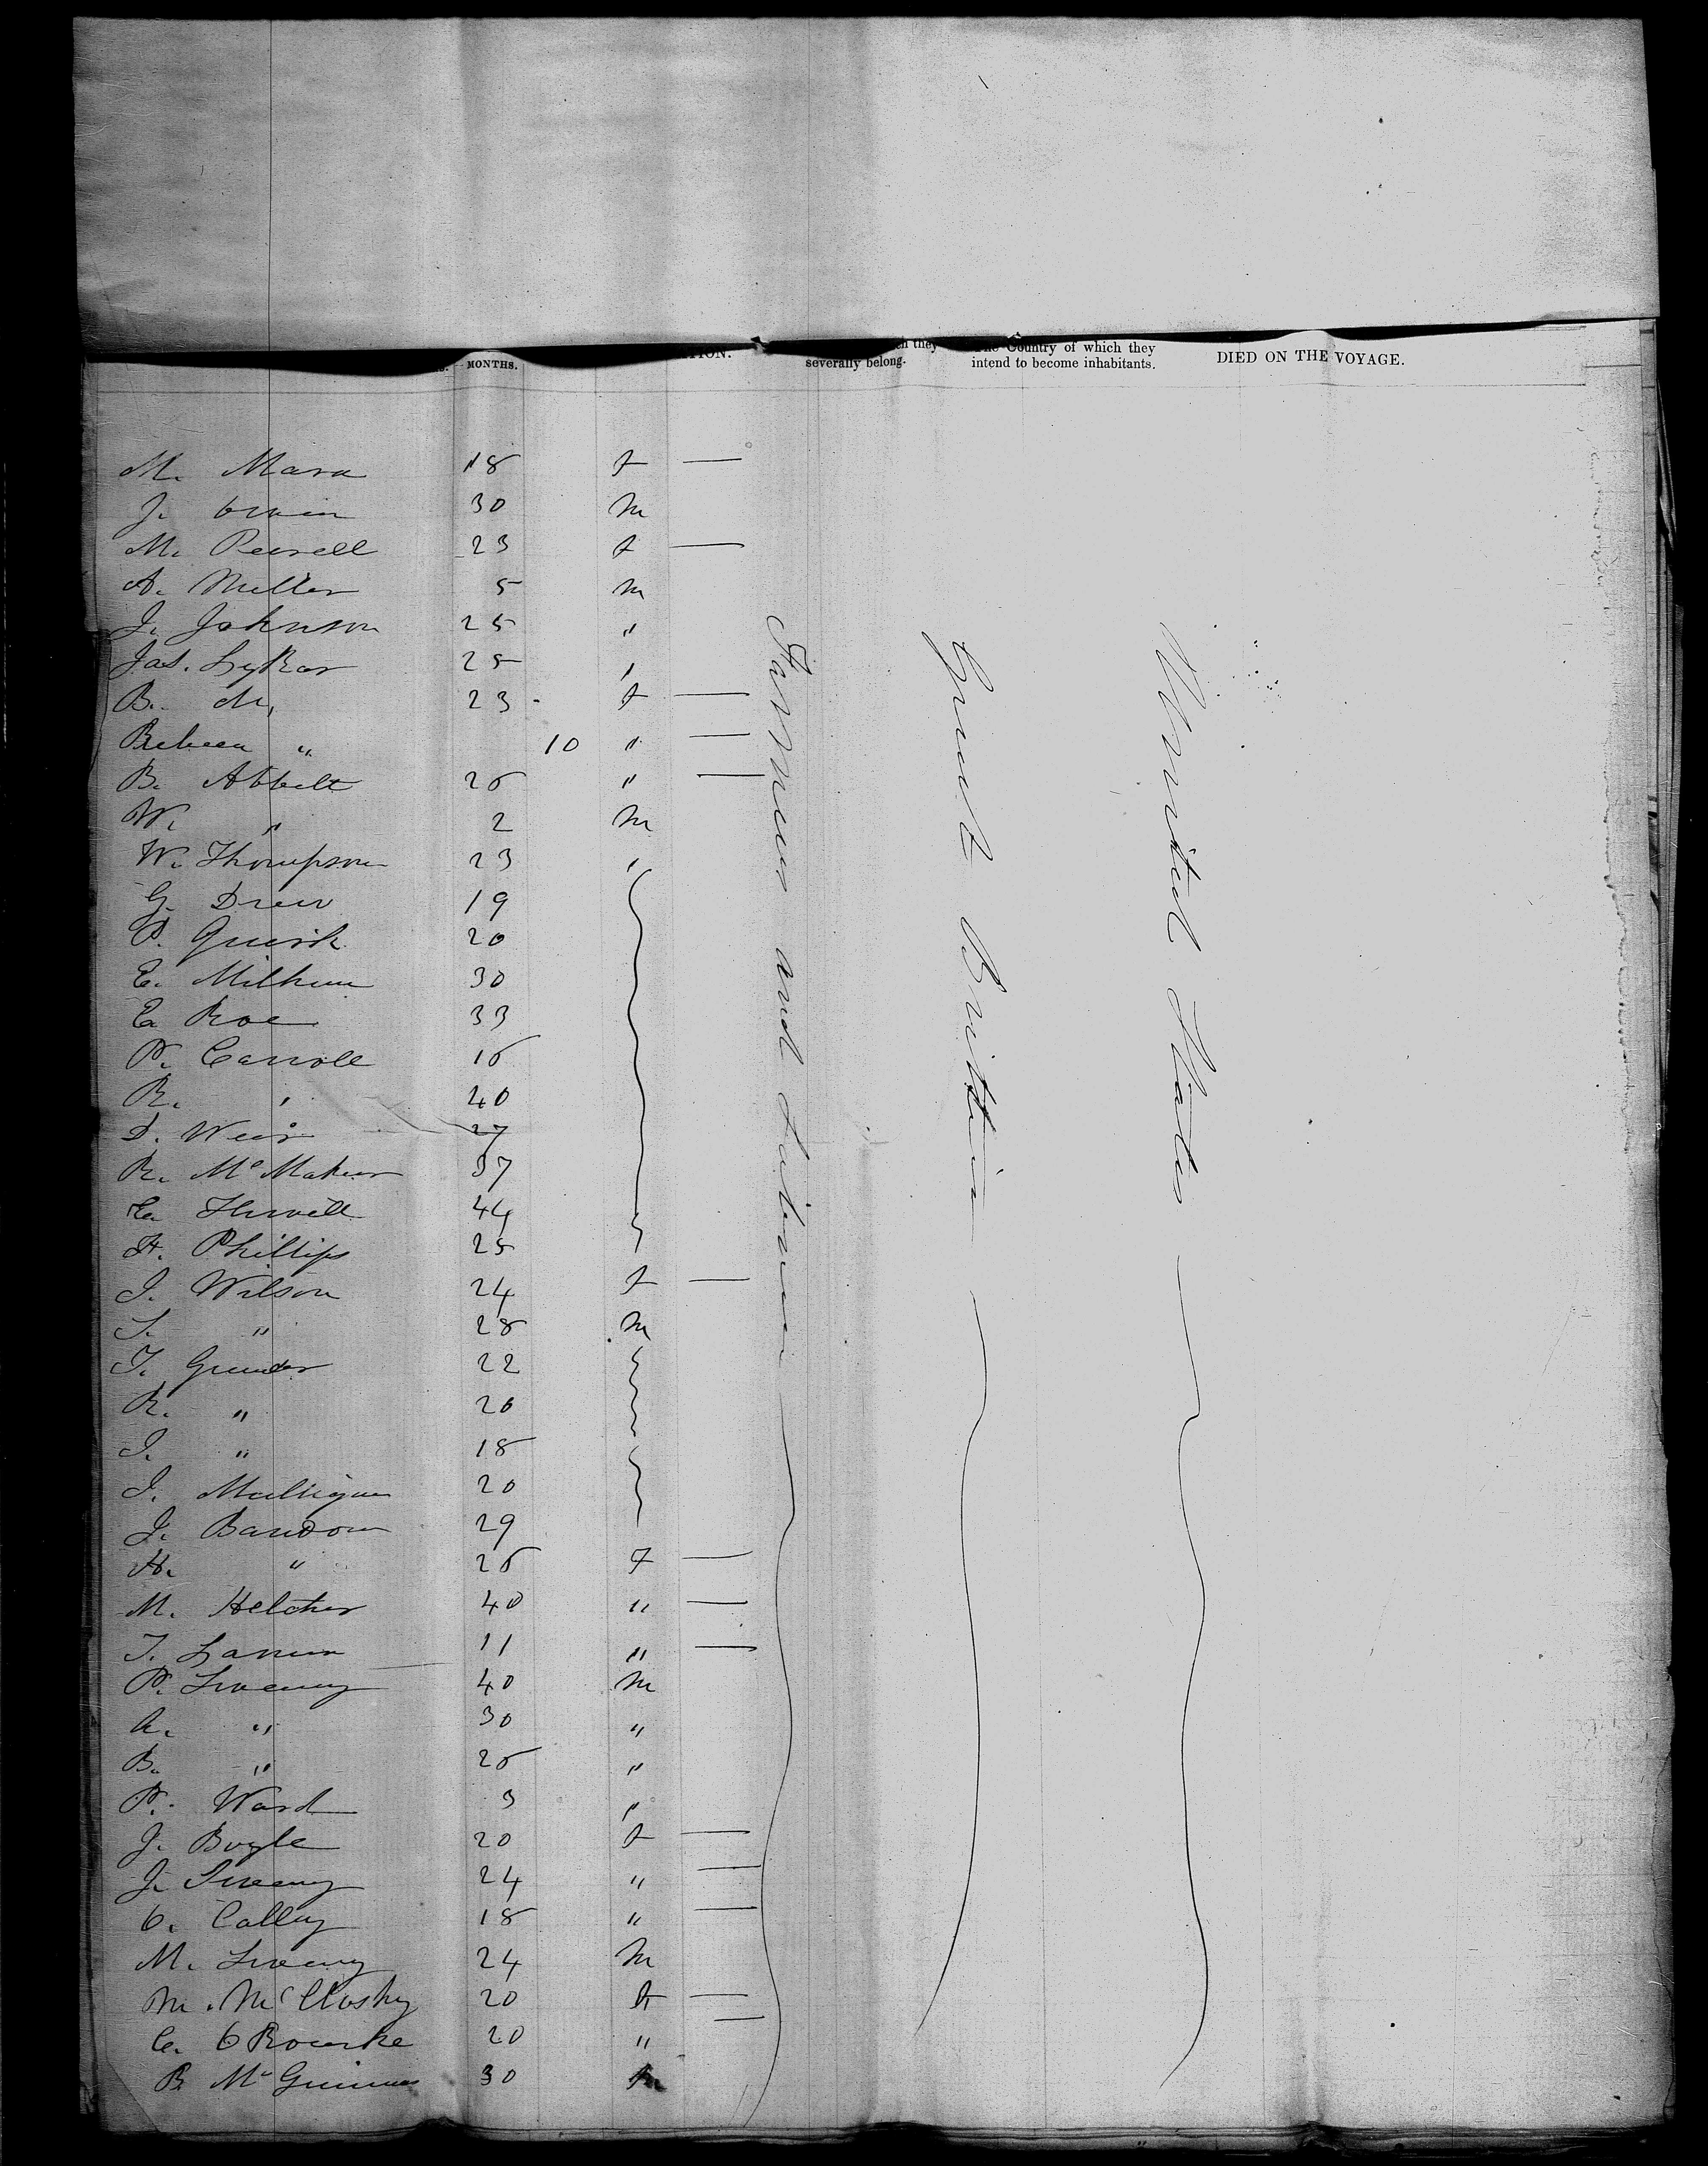 MONTHS.
severally belong.
Country of which they
intend to become inhabitants.
DIED ON THE VOYAGE.
M. Mara 18 f —
J. 30 m
M. Pursell 23 f —
A. Miller 5 m
J. Johnson 25 "
Jas. 25 "
B. 23 f —
" 10 " —
B. Abbott 26 " —
W. " 2 m
W. Thompson 23 "
G. Drew 19
P. Quirk 20
E. 30
E. Roe 33
P. Carroll 16
R. " 40
D. Weir 27
R. McMahon 37
44
H. Phillips 25
J. Wilson 24 f —
S. " 28 m
T. 22
R. " 20
J. " 18
J. Mulligan 20
J. Bandon 29
H. " 26 F —
M. 40 " —
T. 11 " —
P. Sweeny 40 m
A. " 30 "
B. " 26 "
P. Ward 3 "
J. Boyle 20 f —
J. Sweeny 24 " —
18 " —
M. Sweeny 24 m
M. McClosky 20 f —
C. O Rourke 20 " —
B. McGuinness 30
Farmers and Laborers
Great Brittain
United States